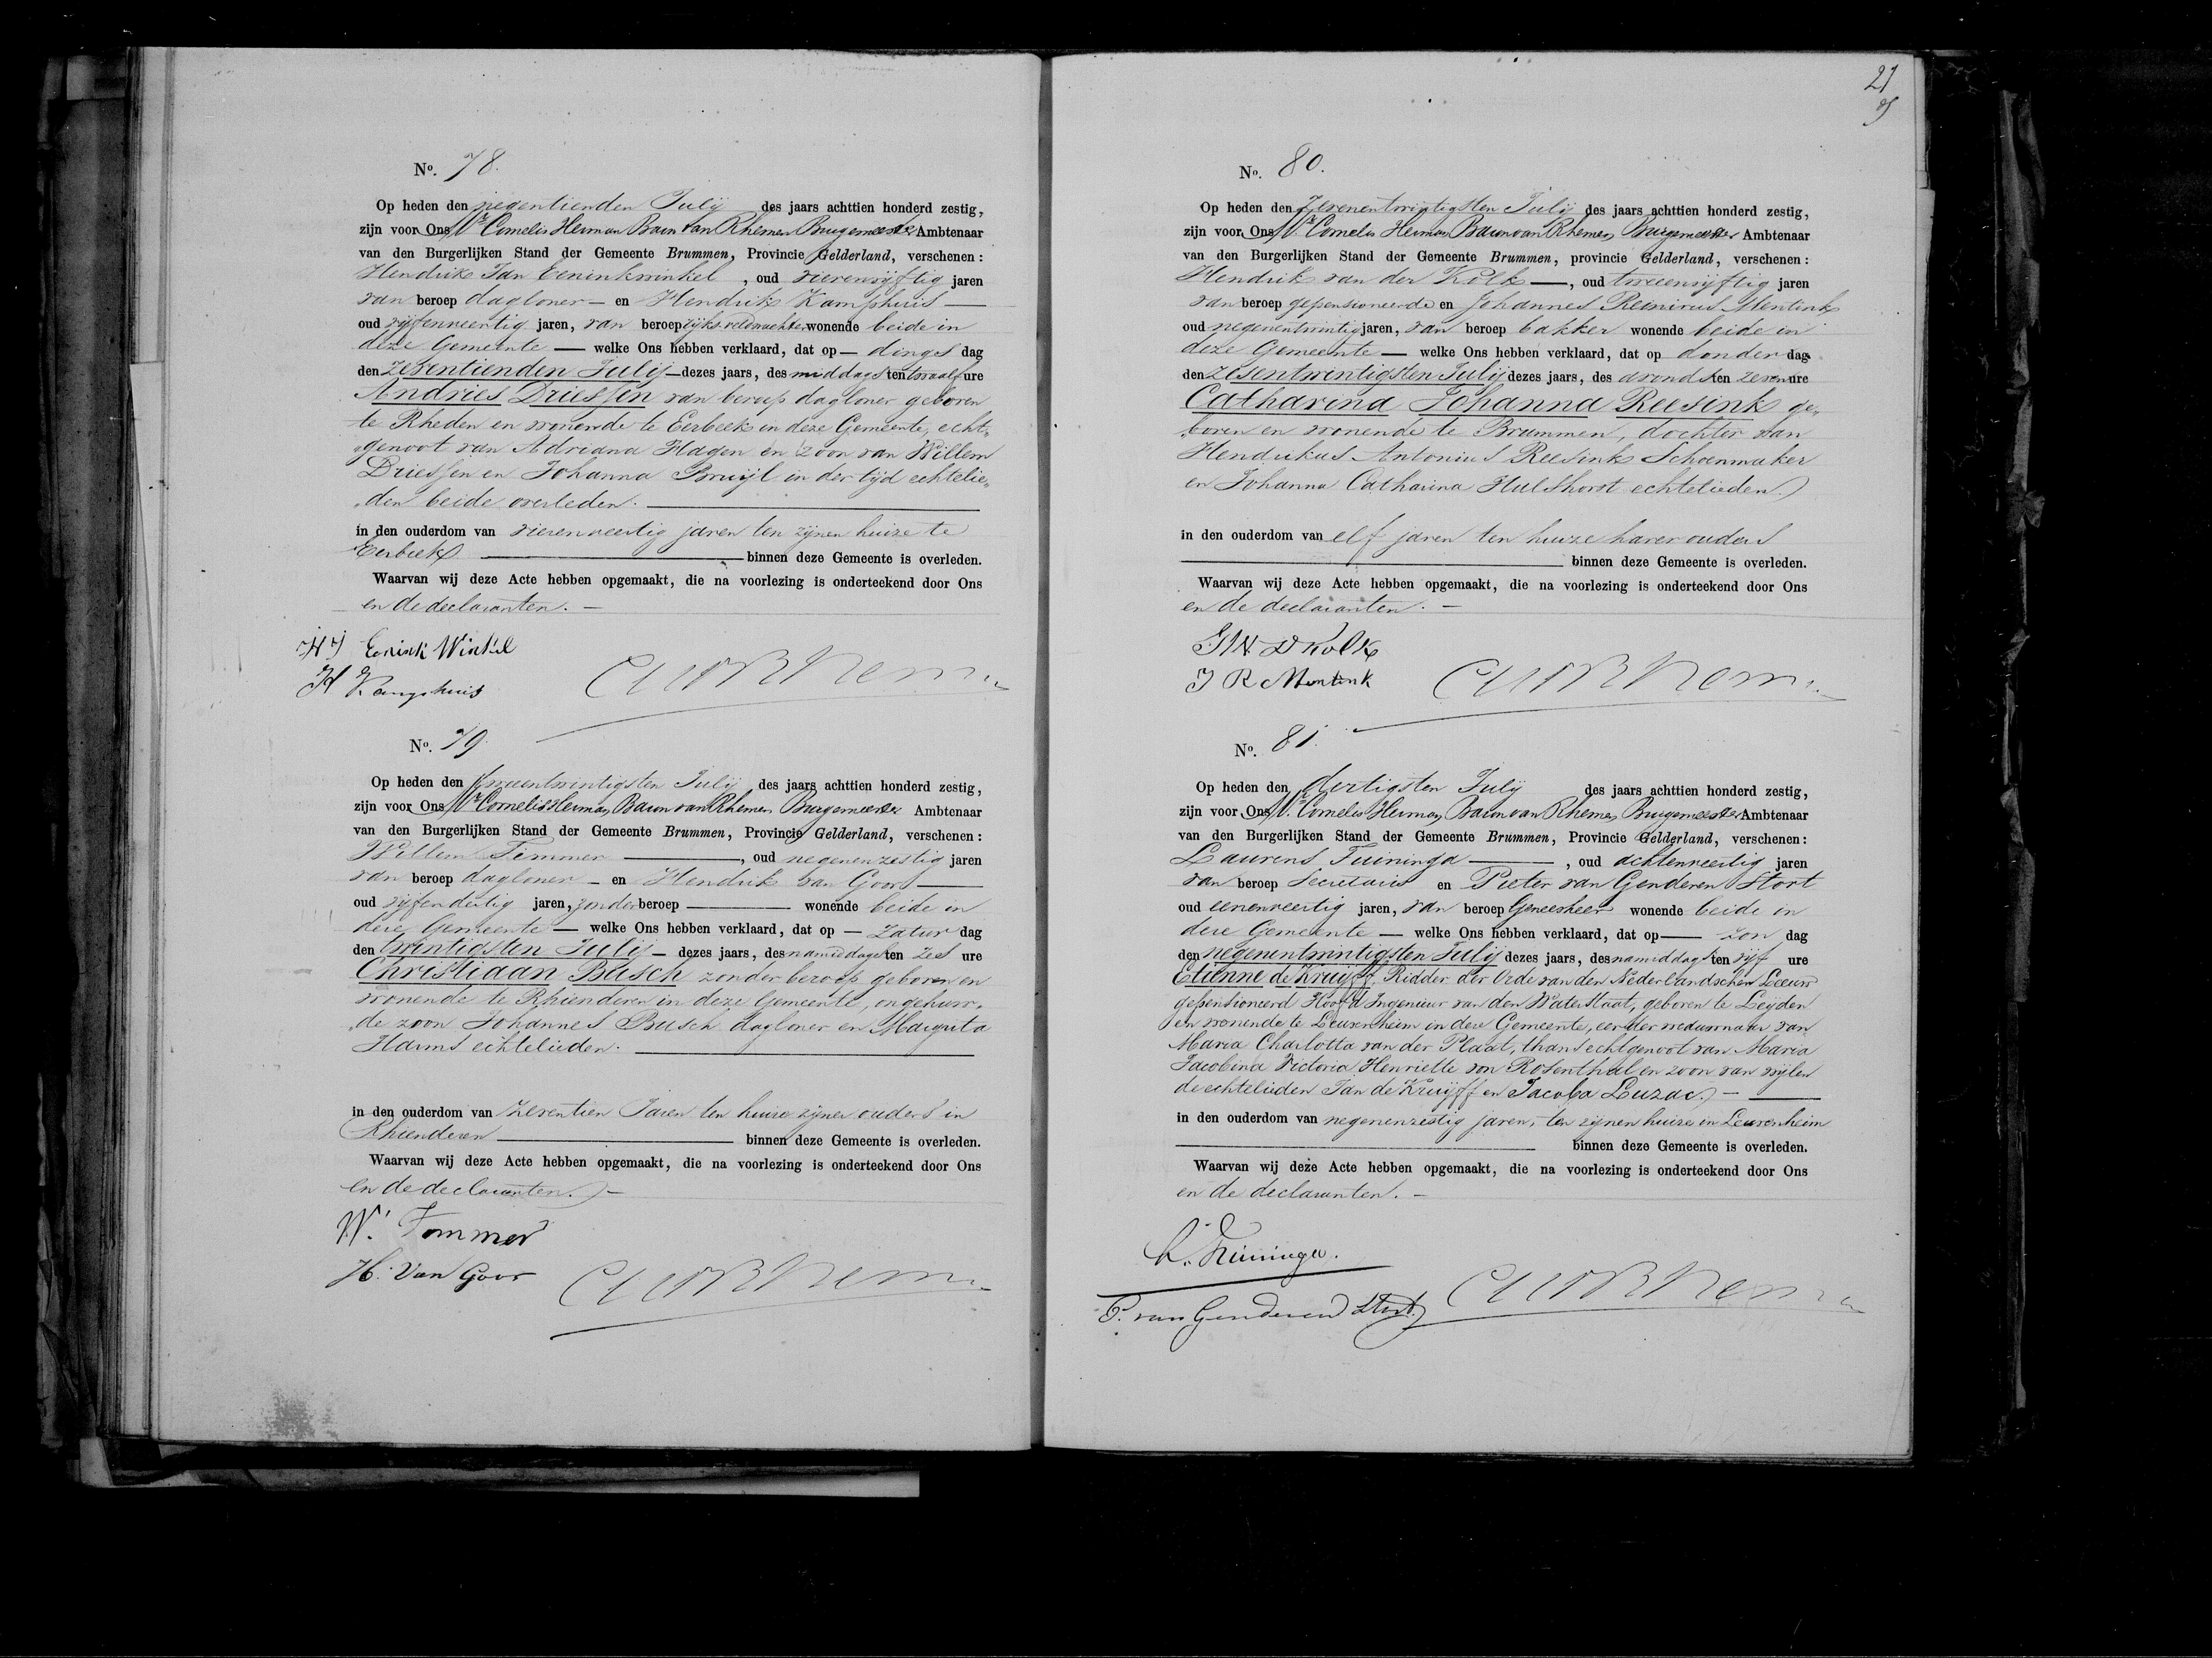 No. 78.
Op heden den negentienden Julij des jaars achttien honderd zestig,
zijn voor Ons Mr Cornelis Herman Baron van Rhemen Burgemeester Ambtenaar
van den Burgerlijken Stand der Gemeente Brummen, Provincie Gelderland, verschenen:
Hendrik Jan Eeninkwinkel, oud vierenvijftig jaren
van beroep dagloner — en Hendrik Kamphuis —
oud vijfenveertig jaren, van beroep rijksveldwachter wonende beide in
deze Gemeente — welke Ons hebben verklaard, dat op — dings dag
den zeventienden Julij — dezes jaars, des middags ten twaalf ure
Andries Driessen van beroep dagloner geboren
te Rheden en wonende te Eerbeek in deze Gemeente, echt„
„genoot van Adriana Hagen en zoon van Willem
Driessen en Johanna Bruijl in der tijd echtelie„
„den beide overleden. —
in den ouderdom van vierenveertig jaren ten zijnen huize te
Eerbeek — binnen deze Gemeente is overleden.
Waarvan wij deze Acte hebben opgemaakt, die na voorlezing is onderteekend door Ons
en de declaranten. —
HJ Eenink Winkel
H Kamphuis
No. 79.
Op heden den tweeentwintigsten Julij des jaars achttien honderd zestig,
zijn voor Ons Mr Cornelis Herman Baron van Rhemen Burgemeester Ambtenaar
van den Burgerlijken Stand der Gemeente Brummen, Provincie Gelderland, verschenen:
Willem Temmer —, oud negenenzestig jaren
van beroep dagloner — en Hendrik van Goor —
oud vijfendertig jaren, zonder beroep — wonende beide in
deze Gemeente — welke Ons hebben verklaard, dat op — Zatur dag
den twintigsten Julij — dezes jaars, des namiddags ten zes ure
Christiaan Busch zonder beroep geboren en
wonende te Rhienderen in deze Gemeente, ongehuw„
„de zoon Johannes Busch dagloner en Margrita
Harms echtelieden. —
in den ouderdom van zeventien Jaren ten huize zijner ouders in
Rhienderen — binnen deze Gemeente is overleden.
Waarvan wij deze Acte hebben opgemaakt, die na voorlezing is onderteekend door Ons
en de declaranten. —
W. Temmer
H. Van Goor
21
No. 80.
Op heden den Zevenentwintigsten Julij des jaars achttien honderd zestig,
zijn voor Ons Mr Cornelis Herman Baron van Rhemen Burgemeester Ambtenaar
van den Burgerlijken Stand der Gemeente Brummen, provincie Gelderland, verschenen:
Hendrik van der Kolk —, oud tweeenvijftig jaren
van beroep gepensioneerde en Johannes Reinirus Mentink
oud negenentwintig jaren, van beroep bakker wonende beide in
deze Gemeente — welke Ons hebben verklaard, dat op donder dag
den zesentwintigsten Julij dezes jaars, des avonds ten zeven ure
Catharina Johanna Reesink ge„
„boren en wonende te Brummen, dochter van
Hendrikus Antonius Reesink Schoenmaker
en Johanna Catharina Hulshorst echtelieden.
in den ouderdom van elf jaren ten huize harer ouders
— binnen deze Gemeente is overleden.
Waarvan wij deze Acte hebben opgemaakt, die na voorlezing is onderteekend door Ons
en de declaranten. —
J R Mentink
No. 81.
Op heden den dertigsten Julij des jaars achttien honderd zestig,
zijn voor Ons Mr Cornelis Herman Baron van Rhemen Burgemeester Ambtenaar
van den Burgerlijken Stand der Gemeente Brummen, Provincie Gelderland, verschenen:
Laurens Tuininga —, oud achtenveertig jaren
van beroep Secretaris en Pieter van Genderen Stort
oud eenenveertig jaren, van beroep Geneesheer wonende beide in
deze Gemeente — welke Ons hebben verklaard, dat op — zon dag
den negenentwintigsten Julij dezes jaars, des namiddags ten vijf ure
Etienne de Kruijff, Ridder der Orde van den Nederlandschen Leeuw
gepensioneerd Hoofd Ingenieur van den Waterstaat, geboren te Leijden
en wonende te Leuvenheim in deze Gemeente, eerder weduwnaar van
Maria Charlotta van der Plaat, thans echtgenoot van Maria
Jacobina Victoria Henriette von Rosenthal en zoon van wijlen
de echtelieden Jan de Kruijff en Jacoba Luzac. —
in den ouderdom van negenenzestig jaren, ten zijnen huize in Leuvenheim
— binnen deze Gemeente is overleden.
Waarvan wij deze Acte hebben opgemaakt, die na voorlezing is onderteekend door Ons
en de declaranten. —
L. Tuininga.
P. van Genderen Stort